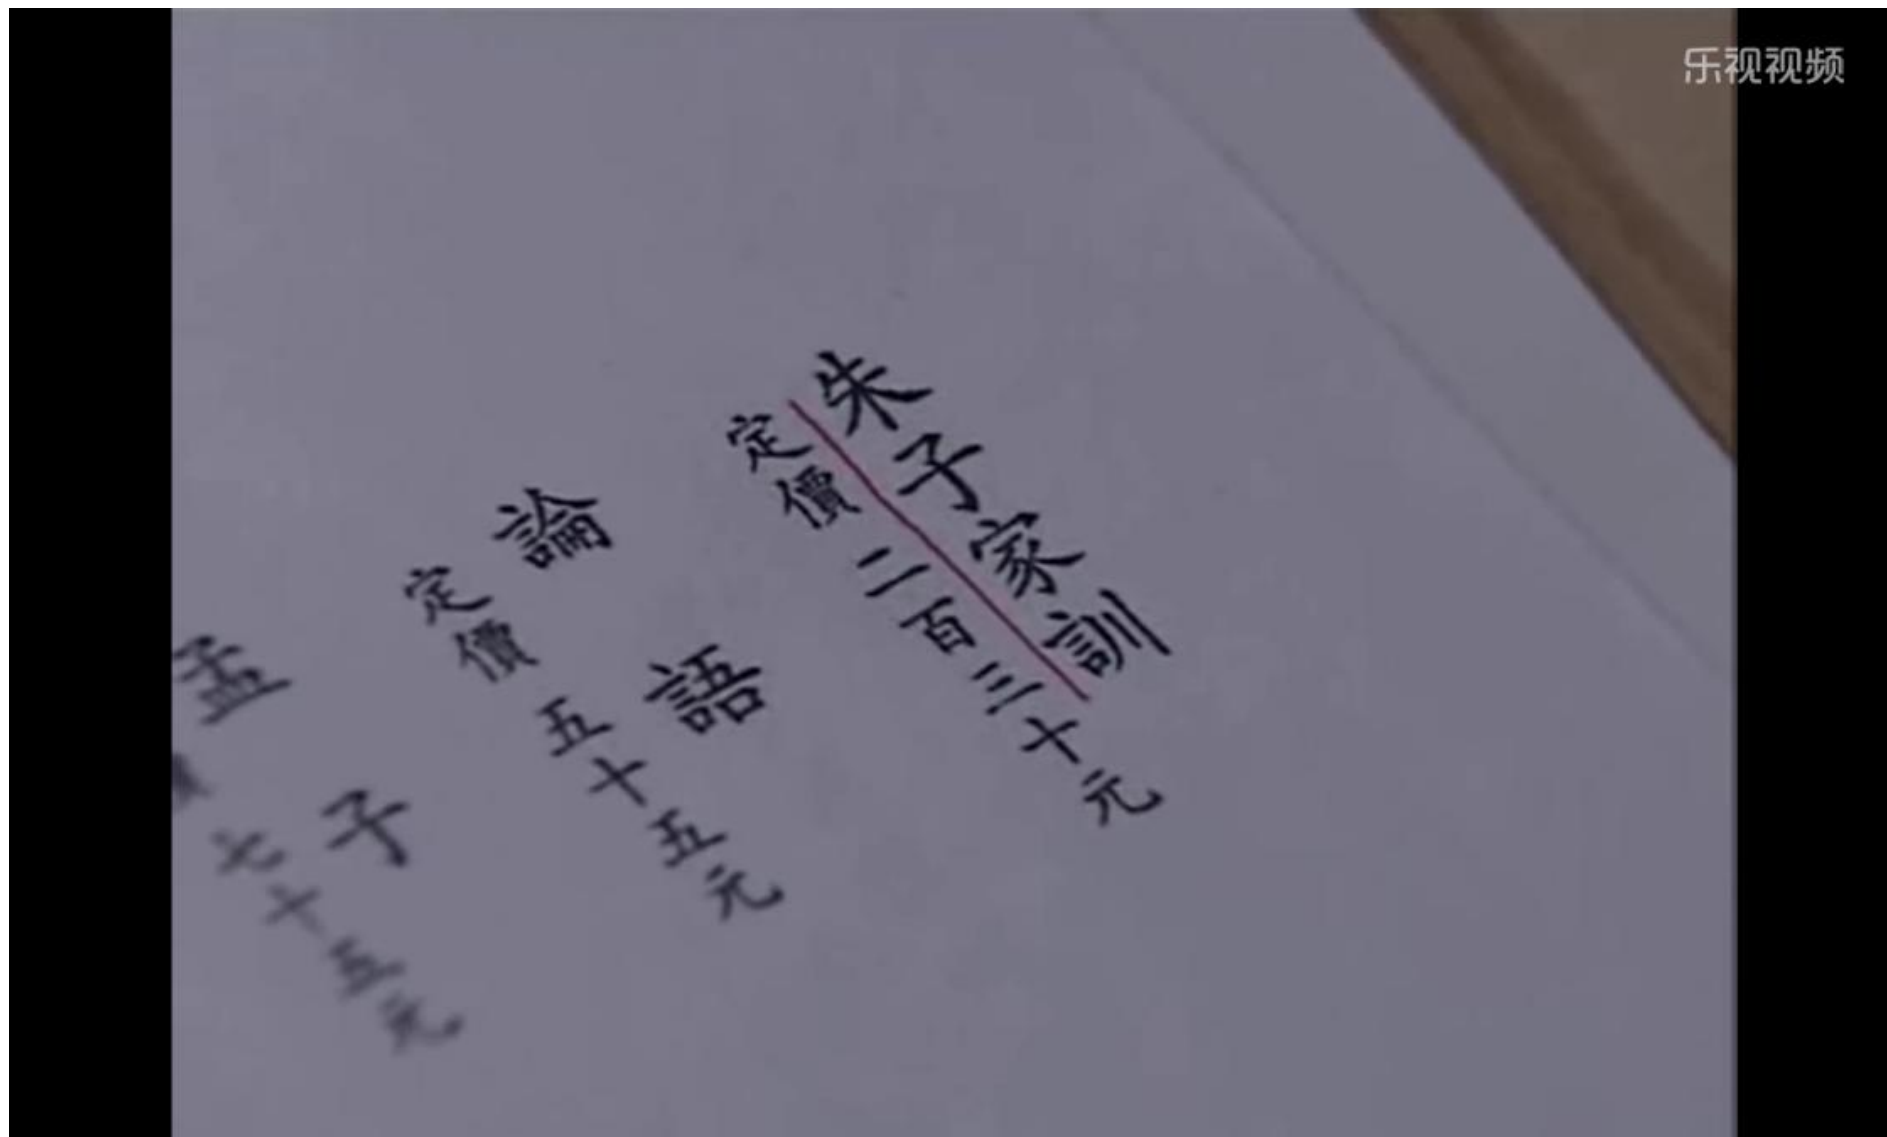 乐视视频
朱子家訓
定價二百三十元
論語
定價五十五元
孟子
價七十五元